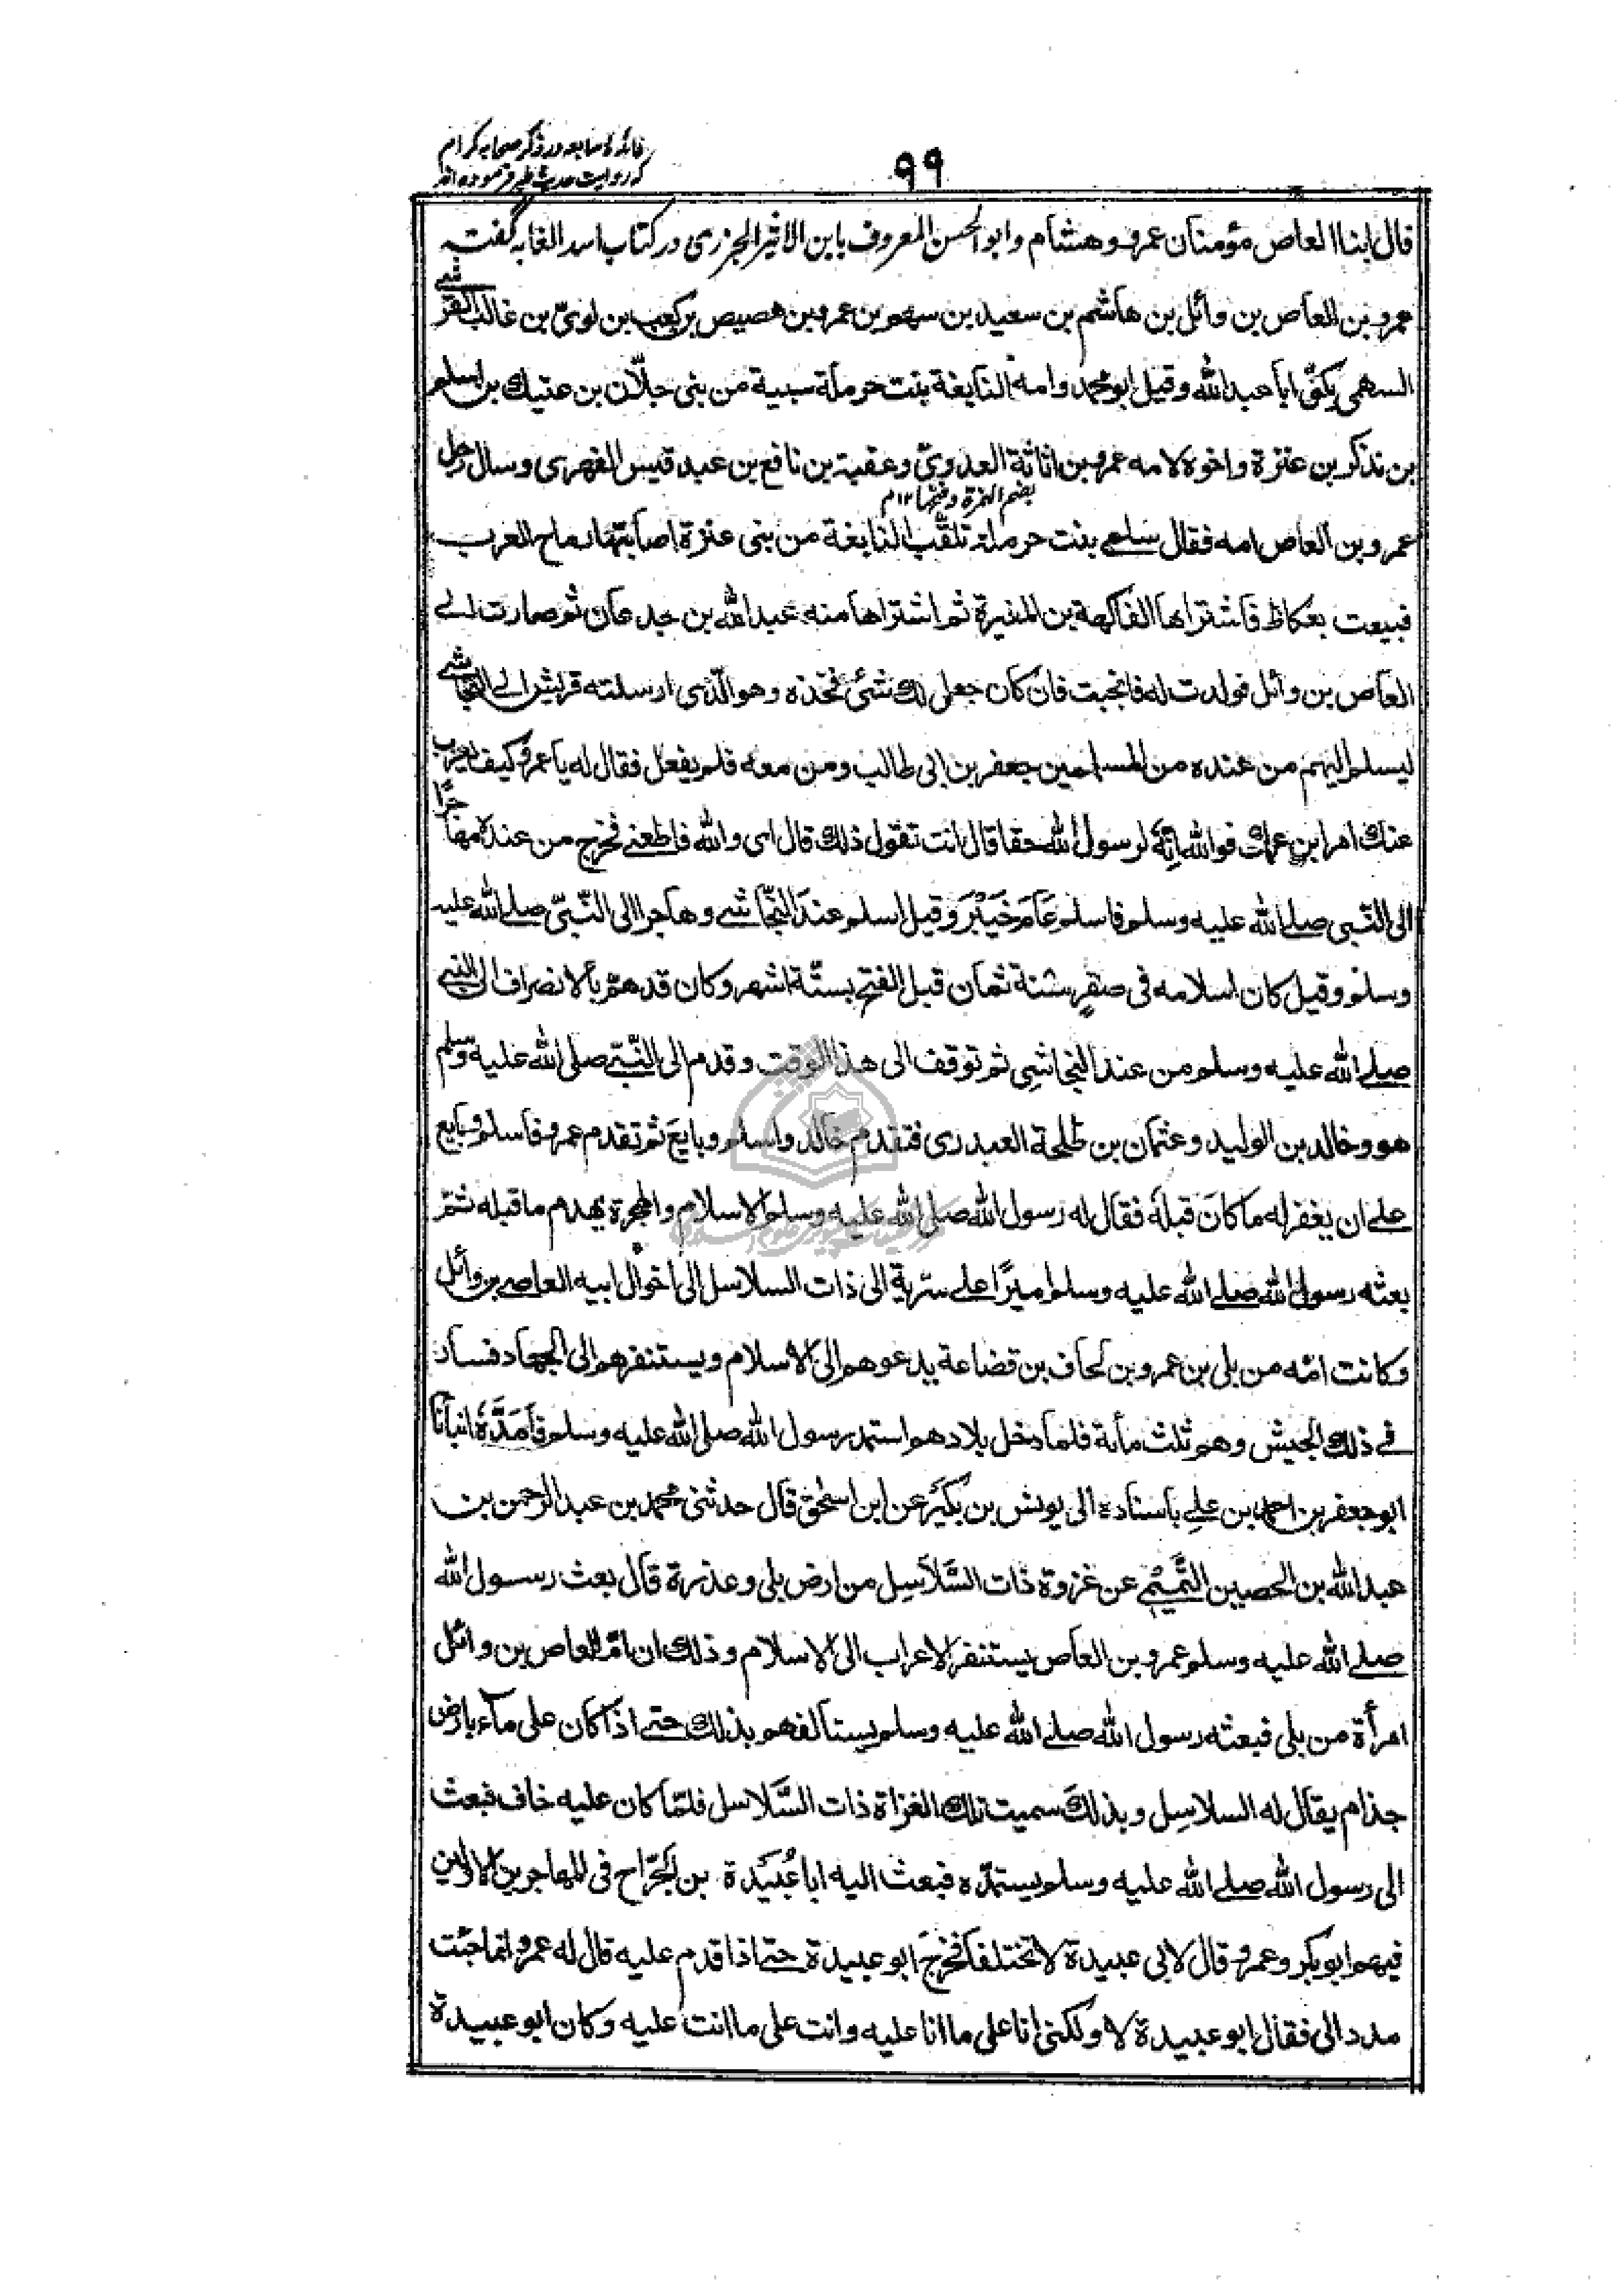 فائدهٔ سابعه در ذکر صحابه کرام
که روایت حدیث طیر فرموده اند
۹۹
قال ابنا العاص مؤمنان عمرو وهشام وابو الحسن المعروف بابن الاثیر الجزری در کتاب اسد الغابه گفته
عمرو بن العاص بن وائل بن هاشم بن سعید بن سهم بن عمرو بن هصیص بن کعب بن لویّ بن غالب القرشی
السهمی یکنّی ابا عبد الله وقیل ابو محمد وامه النابغة بنت حرملة سبیة من بنی جلّان بن عتیك بن اسلم
بن یذکر بن عنزة واخوه لامه عمرو بن اثاثة العدویّ وعقبة بن نافع بن عبد قیس الفهری وسال رجل
بضم الهمزة وفتحها ۱۲م
عمرو بن العاص امه فقال سلمی بنت حرملة تلقّب النابغة من بنی عنزة اصابتها رماح العرب
فبیعت بعکاظ فاشتراها الفاکهة بن المغیرة ثم اشتراها منه عبد الله بن جدعان ثم صارت الی
العاص بن وائل فولدت له فانجبت فان کان جعل لك شئ فخذه وهو الّذی ارسلته قریش الی النجاشی
لیسلم الیهم من عنده من المسلمین جعفر بن ابی طالب ومن معه فلم یفعل فقال له یا عمرو کیف یعزب
عنك امر ابن عمك فو الله انّه لرسول الله حقا قال انت تقول ذلك قال ای والله فاطعنی فخرج من عنده مهاجرًا
الی النبی صلی الله علیه وسلم فاسلم عَامَ خَیْبَرَ وقیل اسلم عند النّجاشی وهاجر الی النّبیّ صلی الله علیه
وسلم وقیل کان اسلامه فی صفر سنة ثمان قبل الفتح بستّة اشهر وکان قد همّ بالانصراف الی النبی
صلی الله علیه وسلم من عند النجاشی ثم توقف الی هذا الوقت وقدم الی النّبیّ صلی الله علیه وسلم
هو وخالد بن الولید وعثمان بن طلحة العبدری فتقدم خالد واسلم وبایع ثم تقدم عمرو فاسلم وبایع
علی ان یغفر له ما کان قبله فقال له رسول الله صلی الله علیه وسلم الاسلام والهجرة یهدم ما قبله ثمّ
بعثه رسول الله صلی الله علیه وسلم امیرًا علی سریة الی ذات السلاسل الی اخوال ابیه العاص بن وائل
وکانت امّه من بلی بن عمرو بن لحاف بن قضاعة یدعوهم الی الاسلام ویستنفرهم الی الجهاد فسار
فی ذلك الجیش وهم ثلث مأیة فلما دخل بلادهم استمد رسول الله صلی الله علیه وسلم فَاَمَدَّهٗ انبأنا
ابو جعفر بن احمد بن علی باسناده الی یونس بن بُکَیْر عن ابن اسحٰق قال حدثنی محمد بن عبد الرحمن بن
عبد الله بن الحصین التَّمیْمی عن غزوة ذات السَّلَاسِل من ارض بلی وعذرة قال بعث رسول الله
صلی الله علیه وسلم عمرو بن العاص یستنفر الاعراب الی الاسلام وذلك ان امّ العاص بن وائل
امرأة من بلی فبعثه رسول الله صلی الله علیه وسلم یستألفهم بذلك حتی اذا کان علی ماء بارض
جذام یقال له السلاسِل وبذلك سمیت تلك الغزاة ذات السَّلَاسل فلمّا کان علیه خاف فبعث
الی رسول الله صلی الله علیه وسلم یستمدّه فبعث الیه ابا عُبَیْدة بن الجرّاح فی المهاجرین الاولین
فیهم ابو بکر وعمر وقال لابی عبیدة لا تختلفا فخرجَ ابو عبیدة حتی اذا قدم علیه قال له عمرو انما جئت
مدد الی فقال ابو عبیدة لا ولکنی انا علی ما انا علیه وانت علی ما انت علیه وکان ابو عبیدة